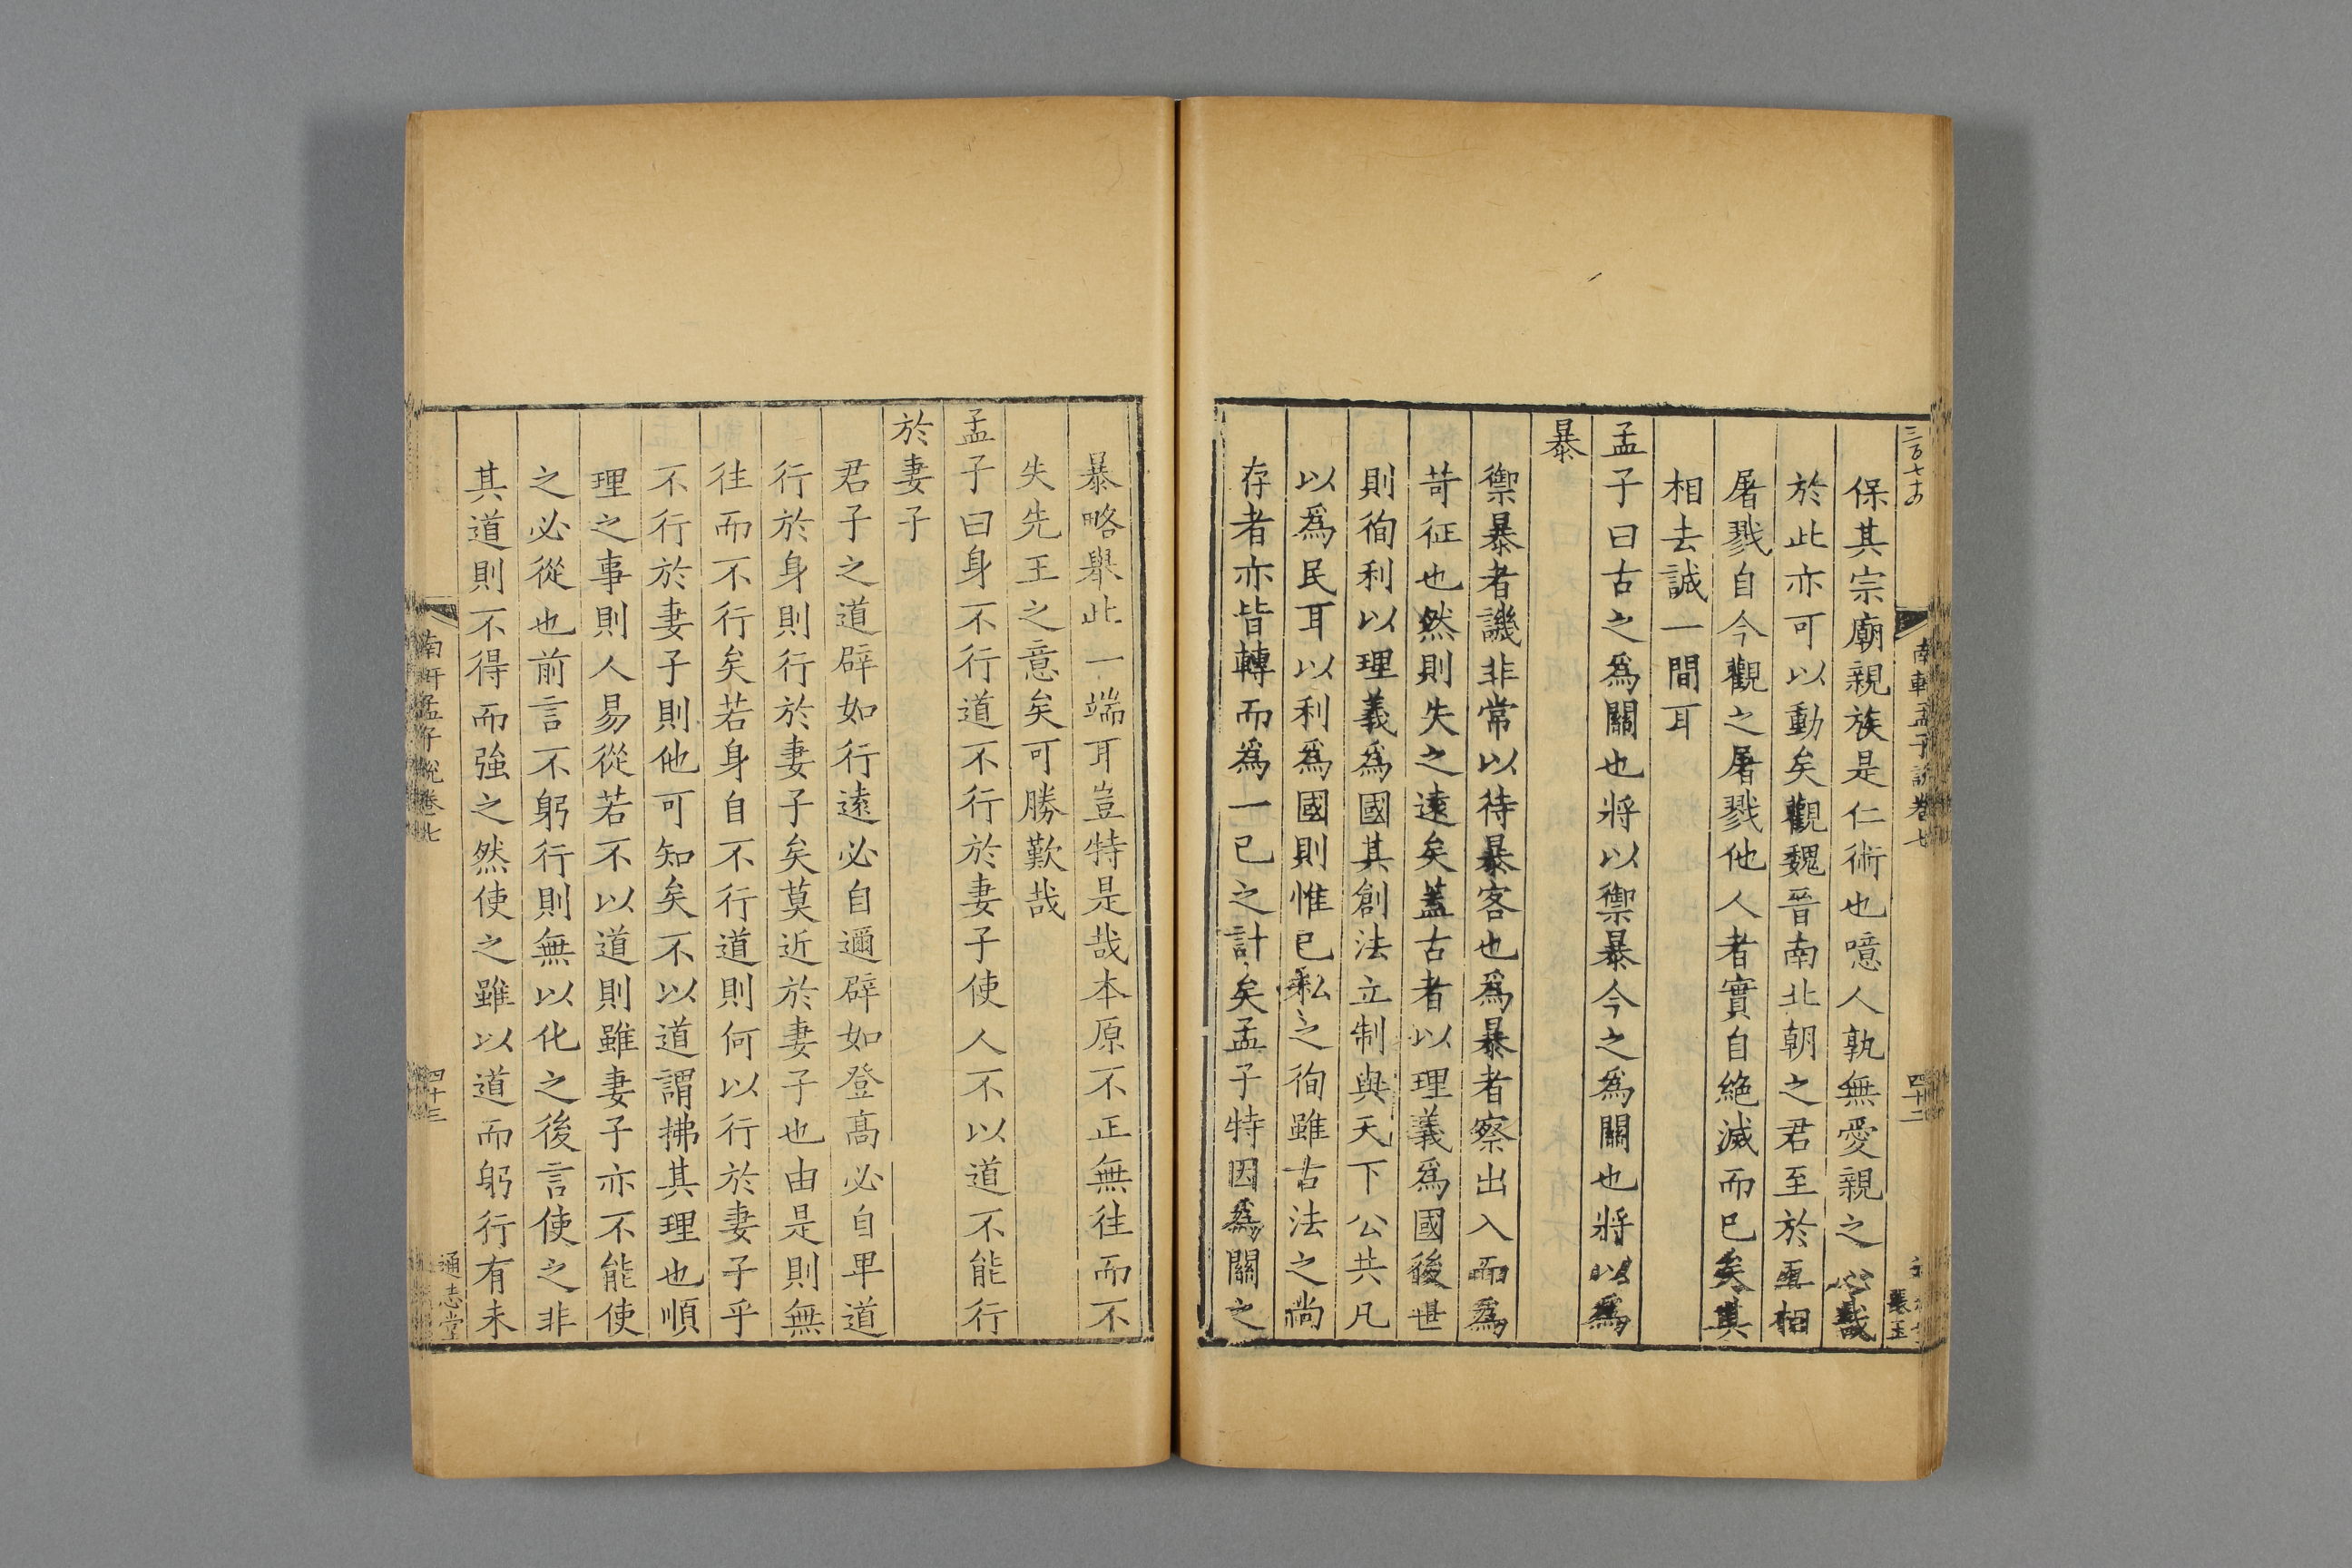 三百七十
南軒孟子說卷七
四十二
保其宗廟親族是仁術也噫人孰無愛親之心哉
於此亦可以動矣觀魏晉南北朝之君至於互相
屠戮自今觀之屠戮他人者實自絕滅而已矣其
相去誠一間耳
孟子曰古之爲關也將以禦暴今之爲關也將以爲
暴
禦暴者譏非常以待暴客也爲暴者察出入而爲
苛征也然則失之遠矣蓋古者以理義爲國後世
則徇利以理義爲國其創法立制與天下公共凡
以爲民耳以利爲國則惟已私之徇雖古法之尚
存者亦皆轉而爲一已之計矣孟子特因爲關之
暴略舉此一端耳豈特是哉本原不正無往而不
失先王之意矣可勝歎哉
孟子曰身不行道不行於妻子使人不以道不能行
於妻子
君子之道辟如行遠必自邇辟如登高必自卑道
行於身則行於妻子矣莫近於妻子也由是則無
往而不行矣若身自不行道則何以行於妻子乎
不行於妻子則他可知矣不以道謂拂其理也順
理之事則人易從若不以道則雖妻子亦不能使
之必從也前言不躬行則無以化之後言使之非
其道則不得而強之然使之雖以道而躬行有未
南軒孟子說卷七
四十三
通志堂